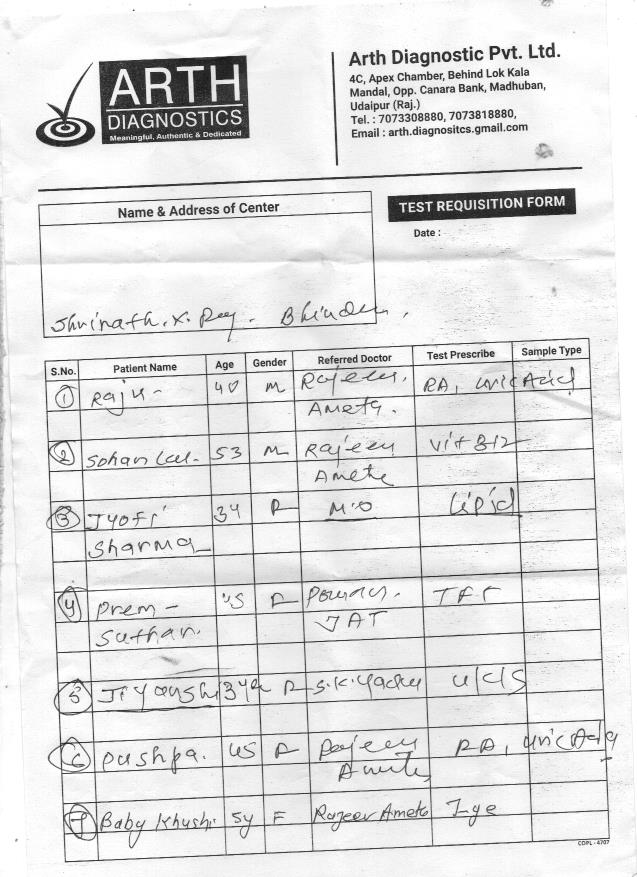 ARTH
DIAGNOSTICS
Meaningful, Authentic & Dedicated
Arth Diagnostic Pvt. Ltd.
4C, Apex Chamber, Behind Lok Kala
Mandal, Opp. Canara Bank, Madhuban,
Udaipur (Raj.)
Tel. : 7073308880, 7073818880,
Email : arth.diagnositcs.gmail.com
Name & Address of Center
TEST REQUISITION FORM
Date :
Shrinath. X. Ray. Bhinder.
S.No. Patient Name Age Gender Referred Doctor Test Prescribe Sample Type
1 Raju - 40 M Rajeev. RA, Uric Acid
Ameta.
2 Sohan Lal. 53 M Rajeev Vit B12
Ameta
3 Jyoti 34 F M.O Lipid
Sharma
4 Prem - 45 F TFT
Suthar. JAT
5 Jiyanshi 3 F S.K. Yadav U/C/S
6 Pushpa. 45 F Rajeev RA, Uric Acid
Ameta
7 Baby Khushi 5y F Rajeev Ameta Ige
CDPL - 4707